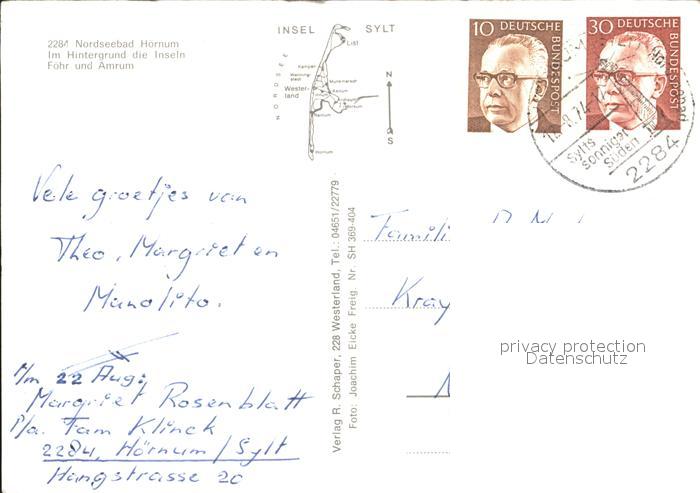 2284 Nordseebad Hörnum
Im Hintergrund die Inseln
Föhr und Amrum
INSEL SYLT
NORDSEE
List
Kampen
Wenningstedt
Westerland
Munkmarsch
Keitum
Rantum
Hörnum
N
S
10 DEUTSCHE BUNDESPOST
30 DEUTSCHE BUNDESPOST
Sylts
sonniger
Süden
2284
Vele groetjes van
Theo, Margriet en
Manolito.
t/m 22 Aug:
Margriet Rosenblatt
p/a. Fam Klinck
2284, Hörnum / Sylt
Hangstrasse 20
Verlag R. Schaper, 228 Westerland, Tel.: 04651/22779
Foto: Joachim Eicke Freig. Nr. SH 369-404
Famili
Kray
privacy protection
Datenschutz